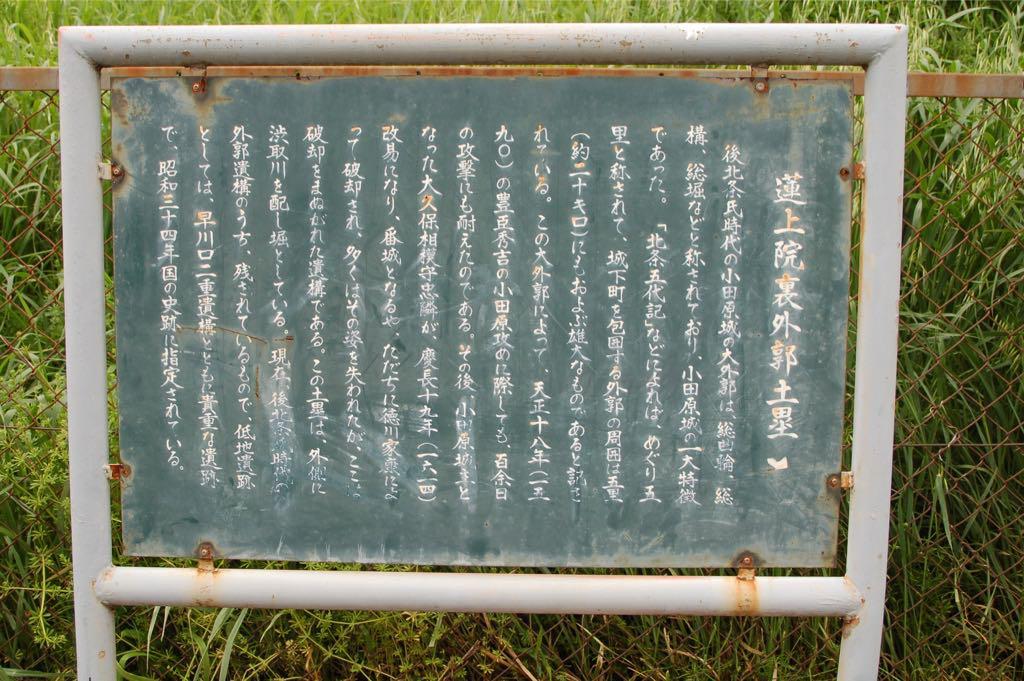 蓮上院裏外郭土塁
後北条氏時代の小田原城の大外郭は、総曲輪、総
構、総堀などと称されており、小田原城の一大特徴
であった。「北条五代記」などによれば、めぐり五
里と称されて、城下町を包囲する外郭の周囲は五里
(約二十キロ)にもおよぶ雄大なものであると記さ
れている。この大外郭によって、天正十八年(一五
九〇)の豊臣秀吉の小田原攻めに際しても、百余日
の攻撃にも耐えたのである。その後、小田原城主と
なった大久保相模守忠隣が、慶長十九年(一六一四)
改易になり、番城となるや、ただちに徳川家康によ
って破却され、多くはその姿を失われたが、ここは
破却をまぬがれた遺構である。この土塁は、外側に
渋取川を配し堀としている。現在、後北条時代の
外郭遺構のうち、残されているもので、低地遺跡
としては、早川口二重遺構とともに貴重な遺跡
で、昭和三十四年国の史跡に指定されている。